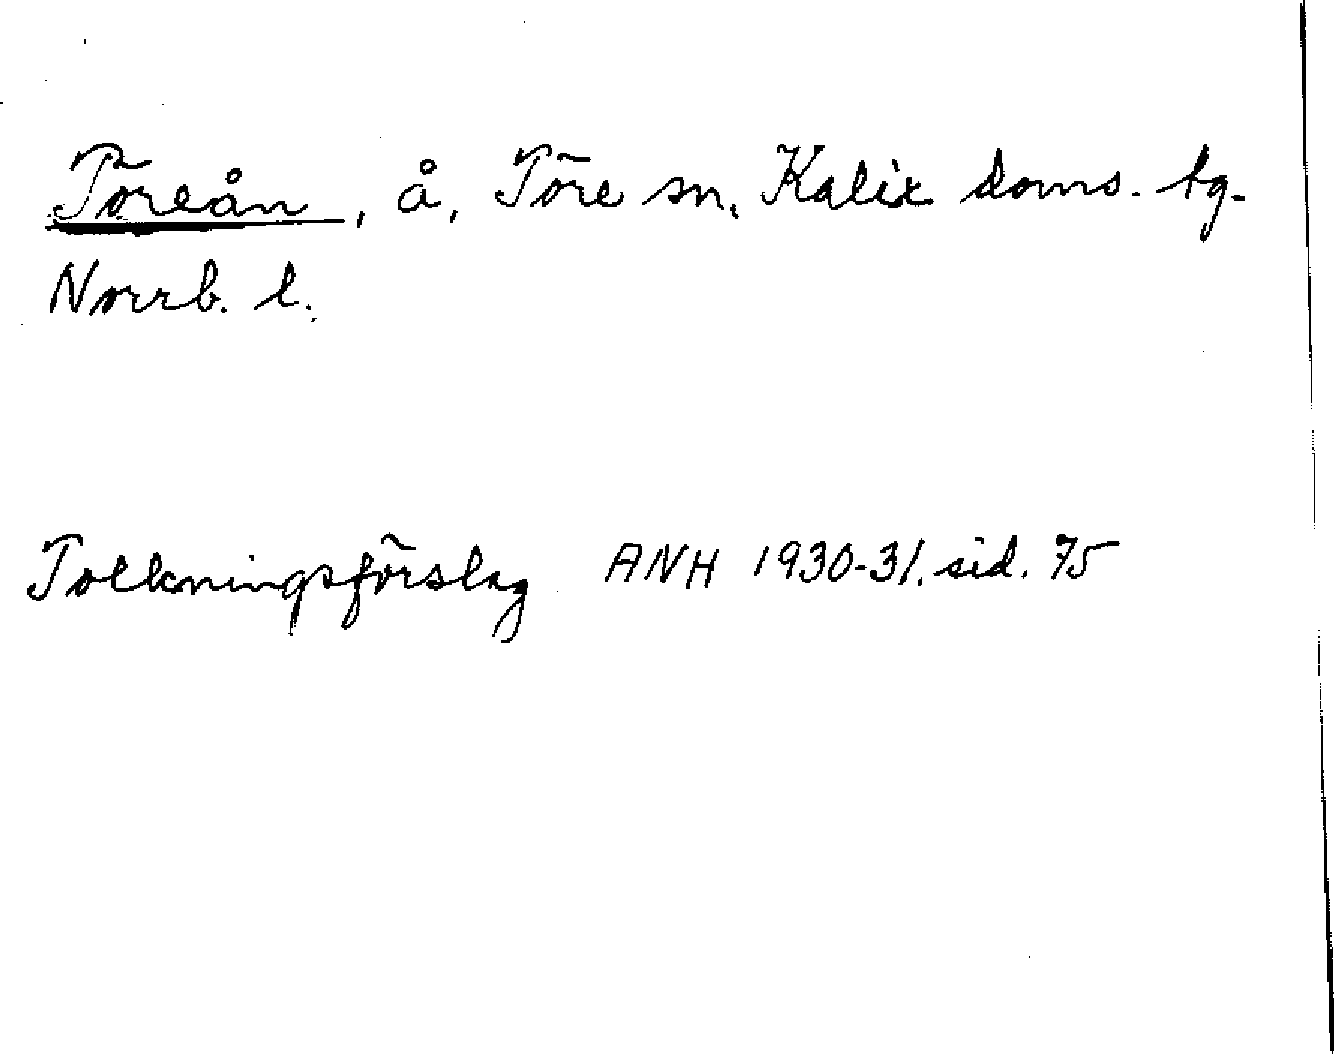 Töreån, å, Töre sn, Kalix doms. tg.
Norrb. l.
Tolkningsförslag ANH 1930-31. sid. 75